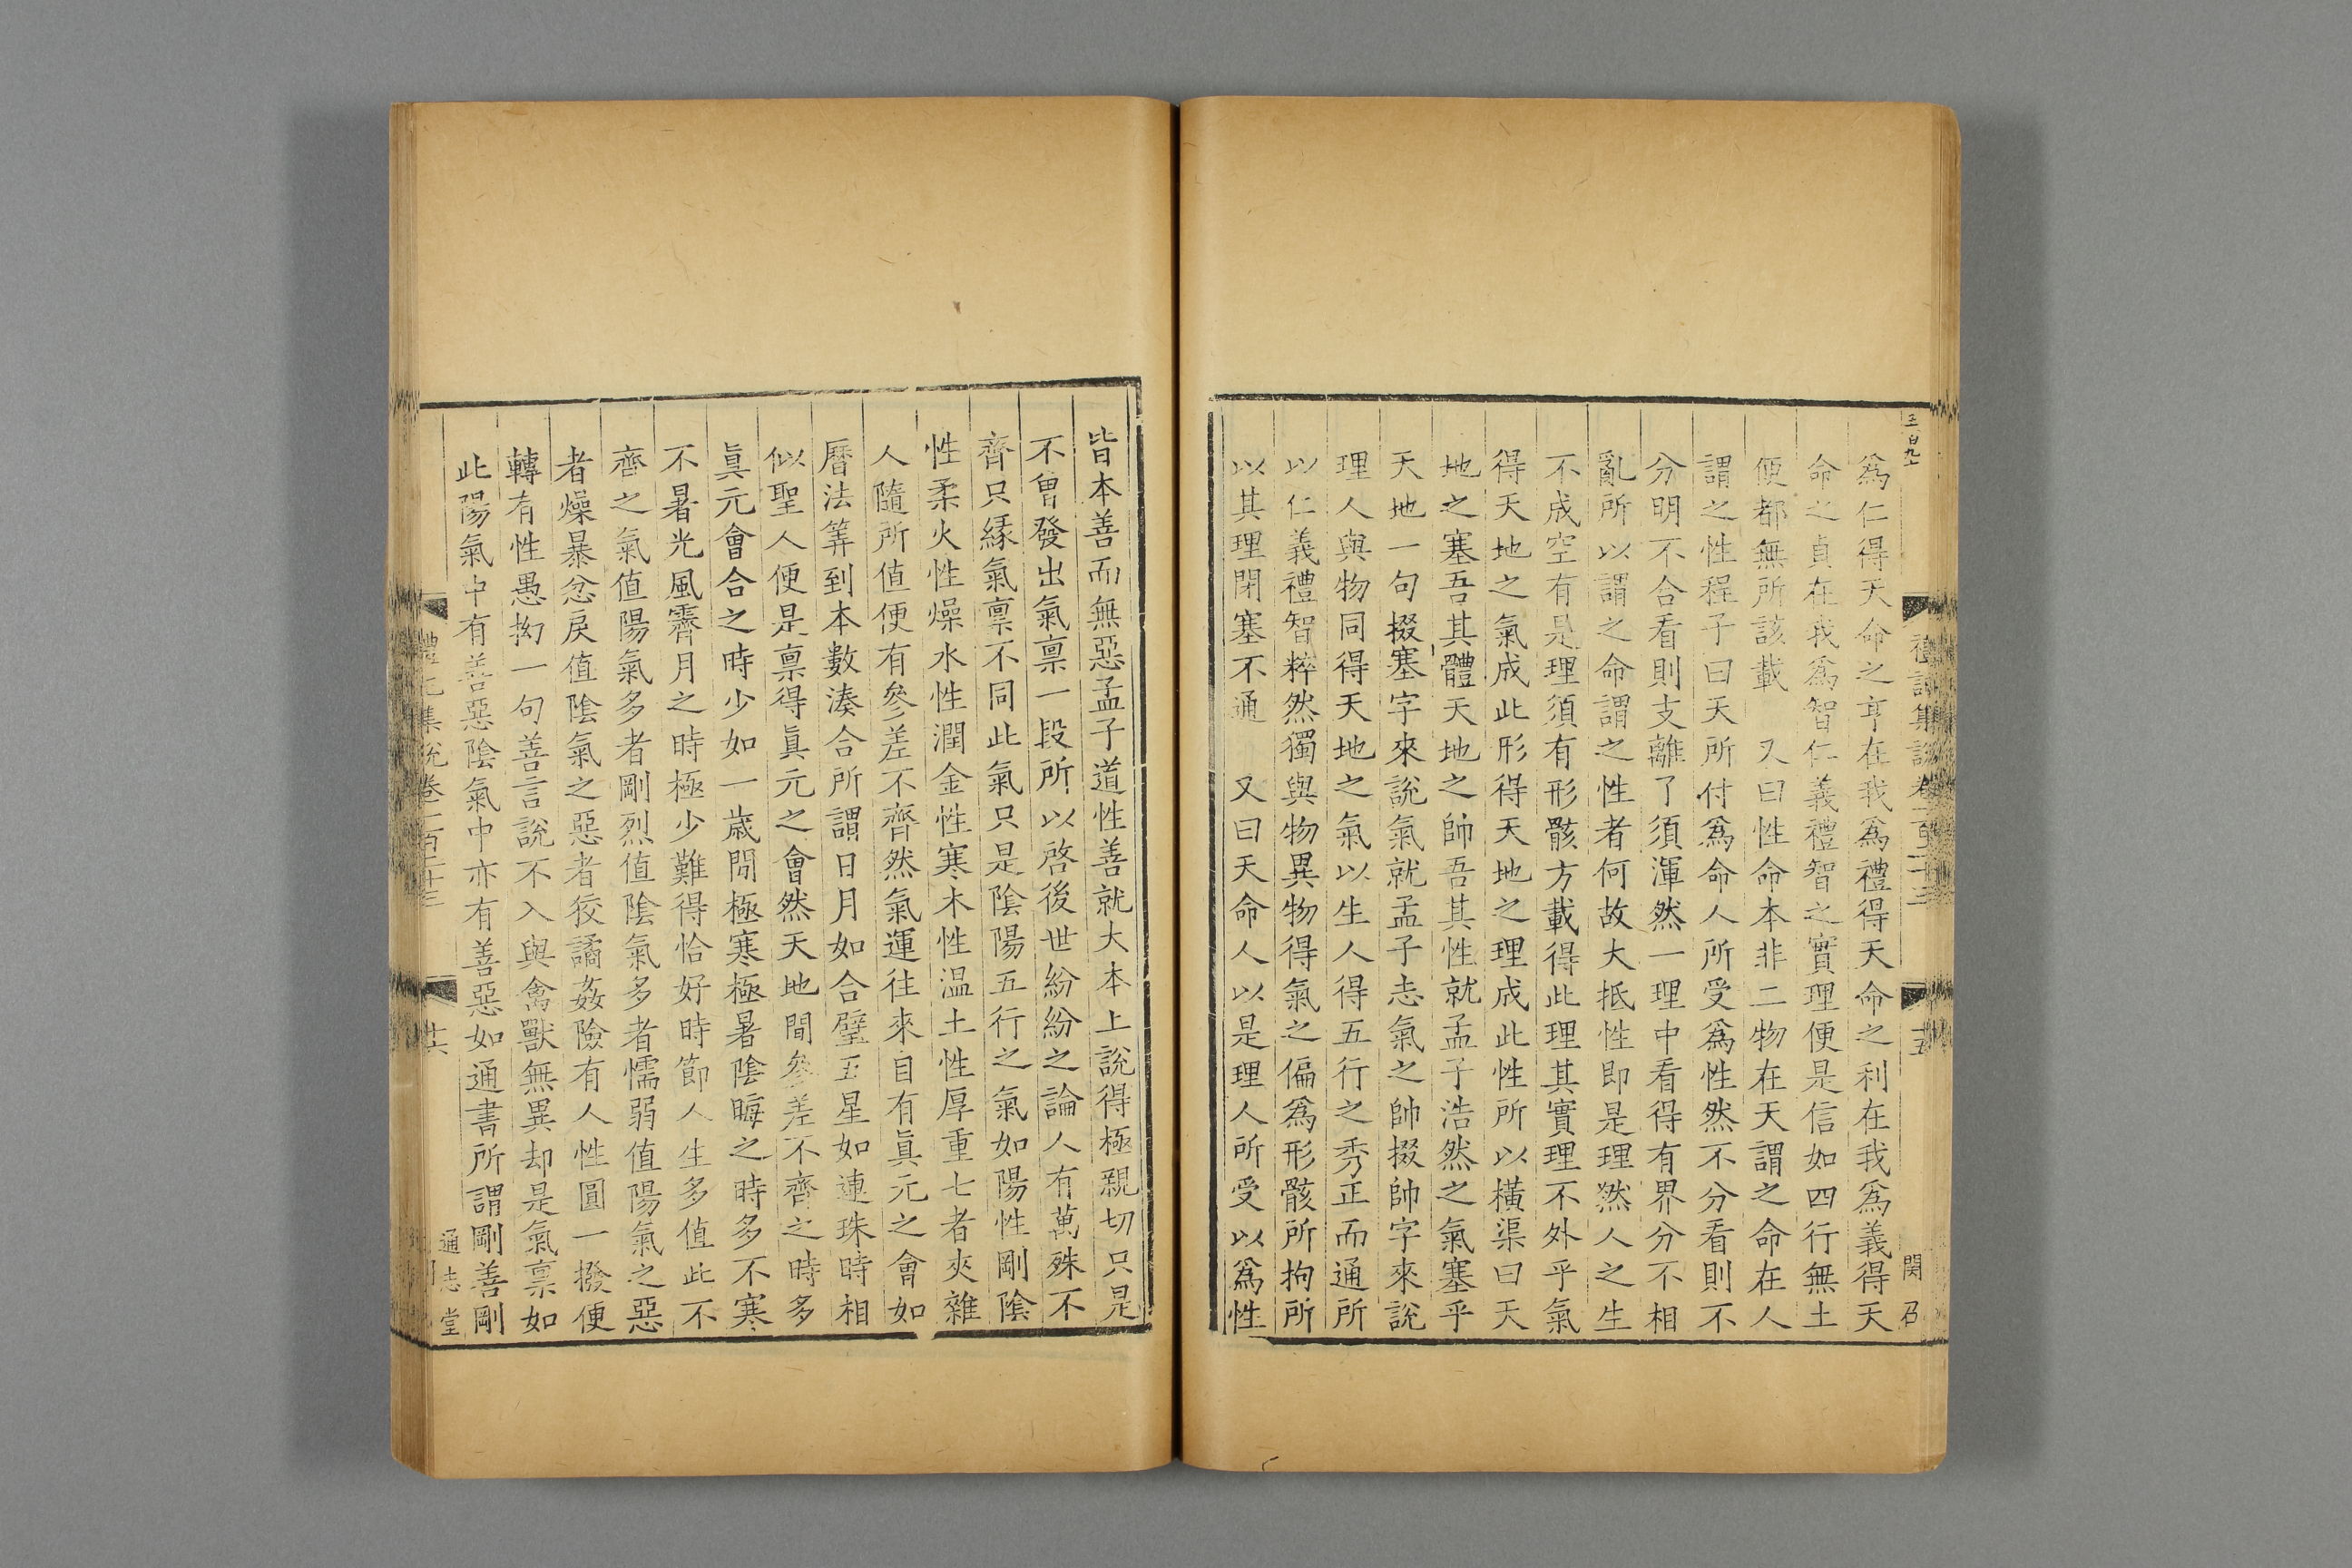 爲仁得天命之亨在我爲禮得天命之利在我爲義得天
命之貞在我爲智仁義禮智之實理便是信如四行無土
便都無所該載　又曰性命本非二物在天謂之命在人
謂之性程子曰天所付爲命人所受爲性然不分看則不
分明不合看則支離了須渾然一理中看得有界分不相
亂所以謂之命謂之性者何故大抵性即是理然人之生
不成空有是理須有形骸方載得此理其實理不外乎氣
得天地之氣成此形得天地之理成此性所以橫渠曰天
地之塞吾其體天地之帥吾其性就孟子浩然之氣塞乎
天地一句掇塞字來說氣就孟子志氣之帥掇帥字來說
理人與物同得天地之氣以生人得五行之秀正而通所
以仁義禮智粹然獨與物異物得氣之偏爲形骸所拘所
以其理閉塞不通　又曰天命人以是理人所受以爲性
皆本善而無惡孟子道性善就大本上說得極親切只是
不曾發出氣禀一段所以啓後世紛紛之論人有萬殊不
齊只緣氣禀不同此氣只是陰陽五行之氣如陽性剛陰
性柔火性燥水性潤金性寒木性温土性厚重七者夾雜
人隨所值便有參差不齊然氣運往來自有眞元之會如
曆法筭到本數湊合所謂日月如合璧五星如連珠時相
似聖人便是禀得眞元之會然天地間參差不齊之時多
眞元會合之時少如一歲間極寒極暑陰晦之時多不寒
不暑光風霽月之時極少難得恰好時節人生多值此不
齊之氣值陽氣多者剛烈值陰氣多者懦弱值陽氣之惡
者燥暴忿戾值陰氣之惡者狡譎姦險有人性圓一撥便
轉有性愚拗一句善言說不入與禽獸無異却是氣禀如
此陽氣中有善惡陰氣中亦有善惡如通書所謂剛善剛
禮記集說卷一百二十三
十六
通志堂